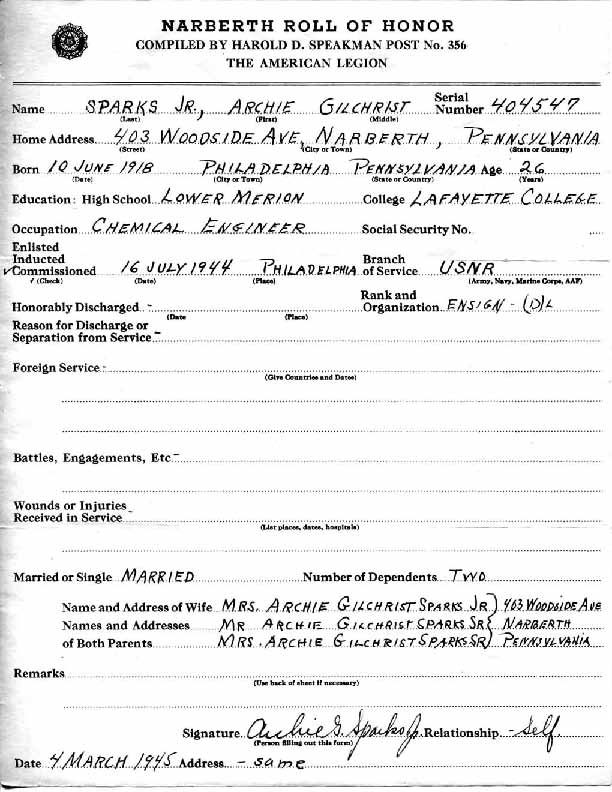 NARBERTH ROLL OF HONOR
COMPILED BY HAROLD D. SPEAKMAN POST No. 356
THE AMERICAN LEGION
Name SPARKS JR., ARCHIE GILCHRIST Serial Number 404547
(Last) (First) (Middle)
Home Address 403 WOODSIDE AVE, NARBERTH, PENNSYLVANIA
(Street) (City or Town) (State or Country)
Born 10 JUNE 1918 PHILADELPHIA PENNSYLVANIA Age 26
(Date) (City or Town) (State or Country) (Years)
Education: High School LOWER MERION College LAFAYETTE COLLEGE
Occupation CHEMICAL ENGINEER Social Security No.
Enlisted
Inducted Branch
✓Commissioned 16 JULY 1944 PHILADELPHIA of Service USNR
✓ (Check) (Date) (Place) (Army, Navy, Marine Corps, AAF)
Rank and
Honorably Discharged - Organization ENSIGN - (D)L
(Date (Place)
Reason for Discharge or
Separation from Service -
Foreign Service -
(Give Countries and Dates)
Battles, Engagements, Etc -
Wounds or Injuries
Received in Service -
(List places, dates, hospitals)
Married or Single MARRIED Number of Dependents TWO
Name and Address of Wife MRS. ARCHIE GILCHRIST SPARKS JR) 403 WOODSIDE AVE
Names and Addresses MR ARCHIE GILCHRIST SPARKS SR{ NARBERTH
of Both Parents MRS. ARCHIE GILCHRIST SPARKS SR) PENNSYLVANIA
Remarks
(Use back of sheet if necessary)
Signature Archie G. Sparks Jr. Relationship - Self.
(Person filling out this form)
Date 4 MARCH 1945 Address - same